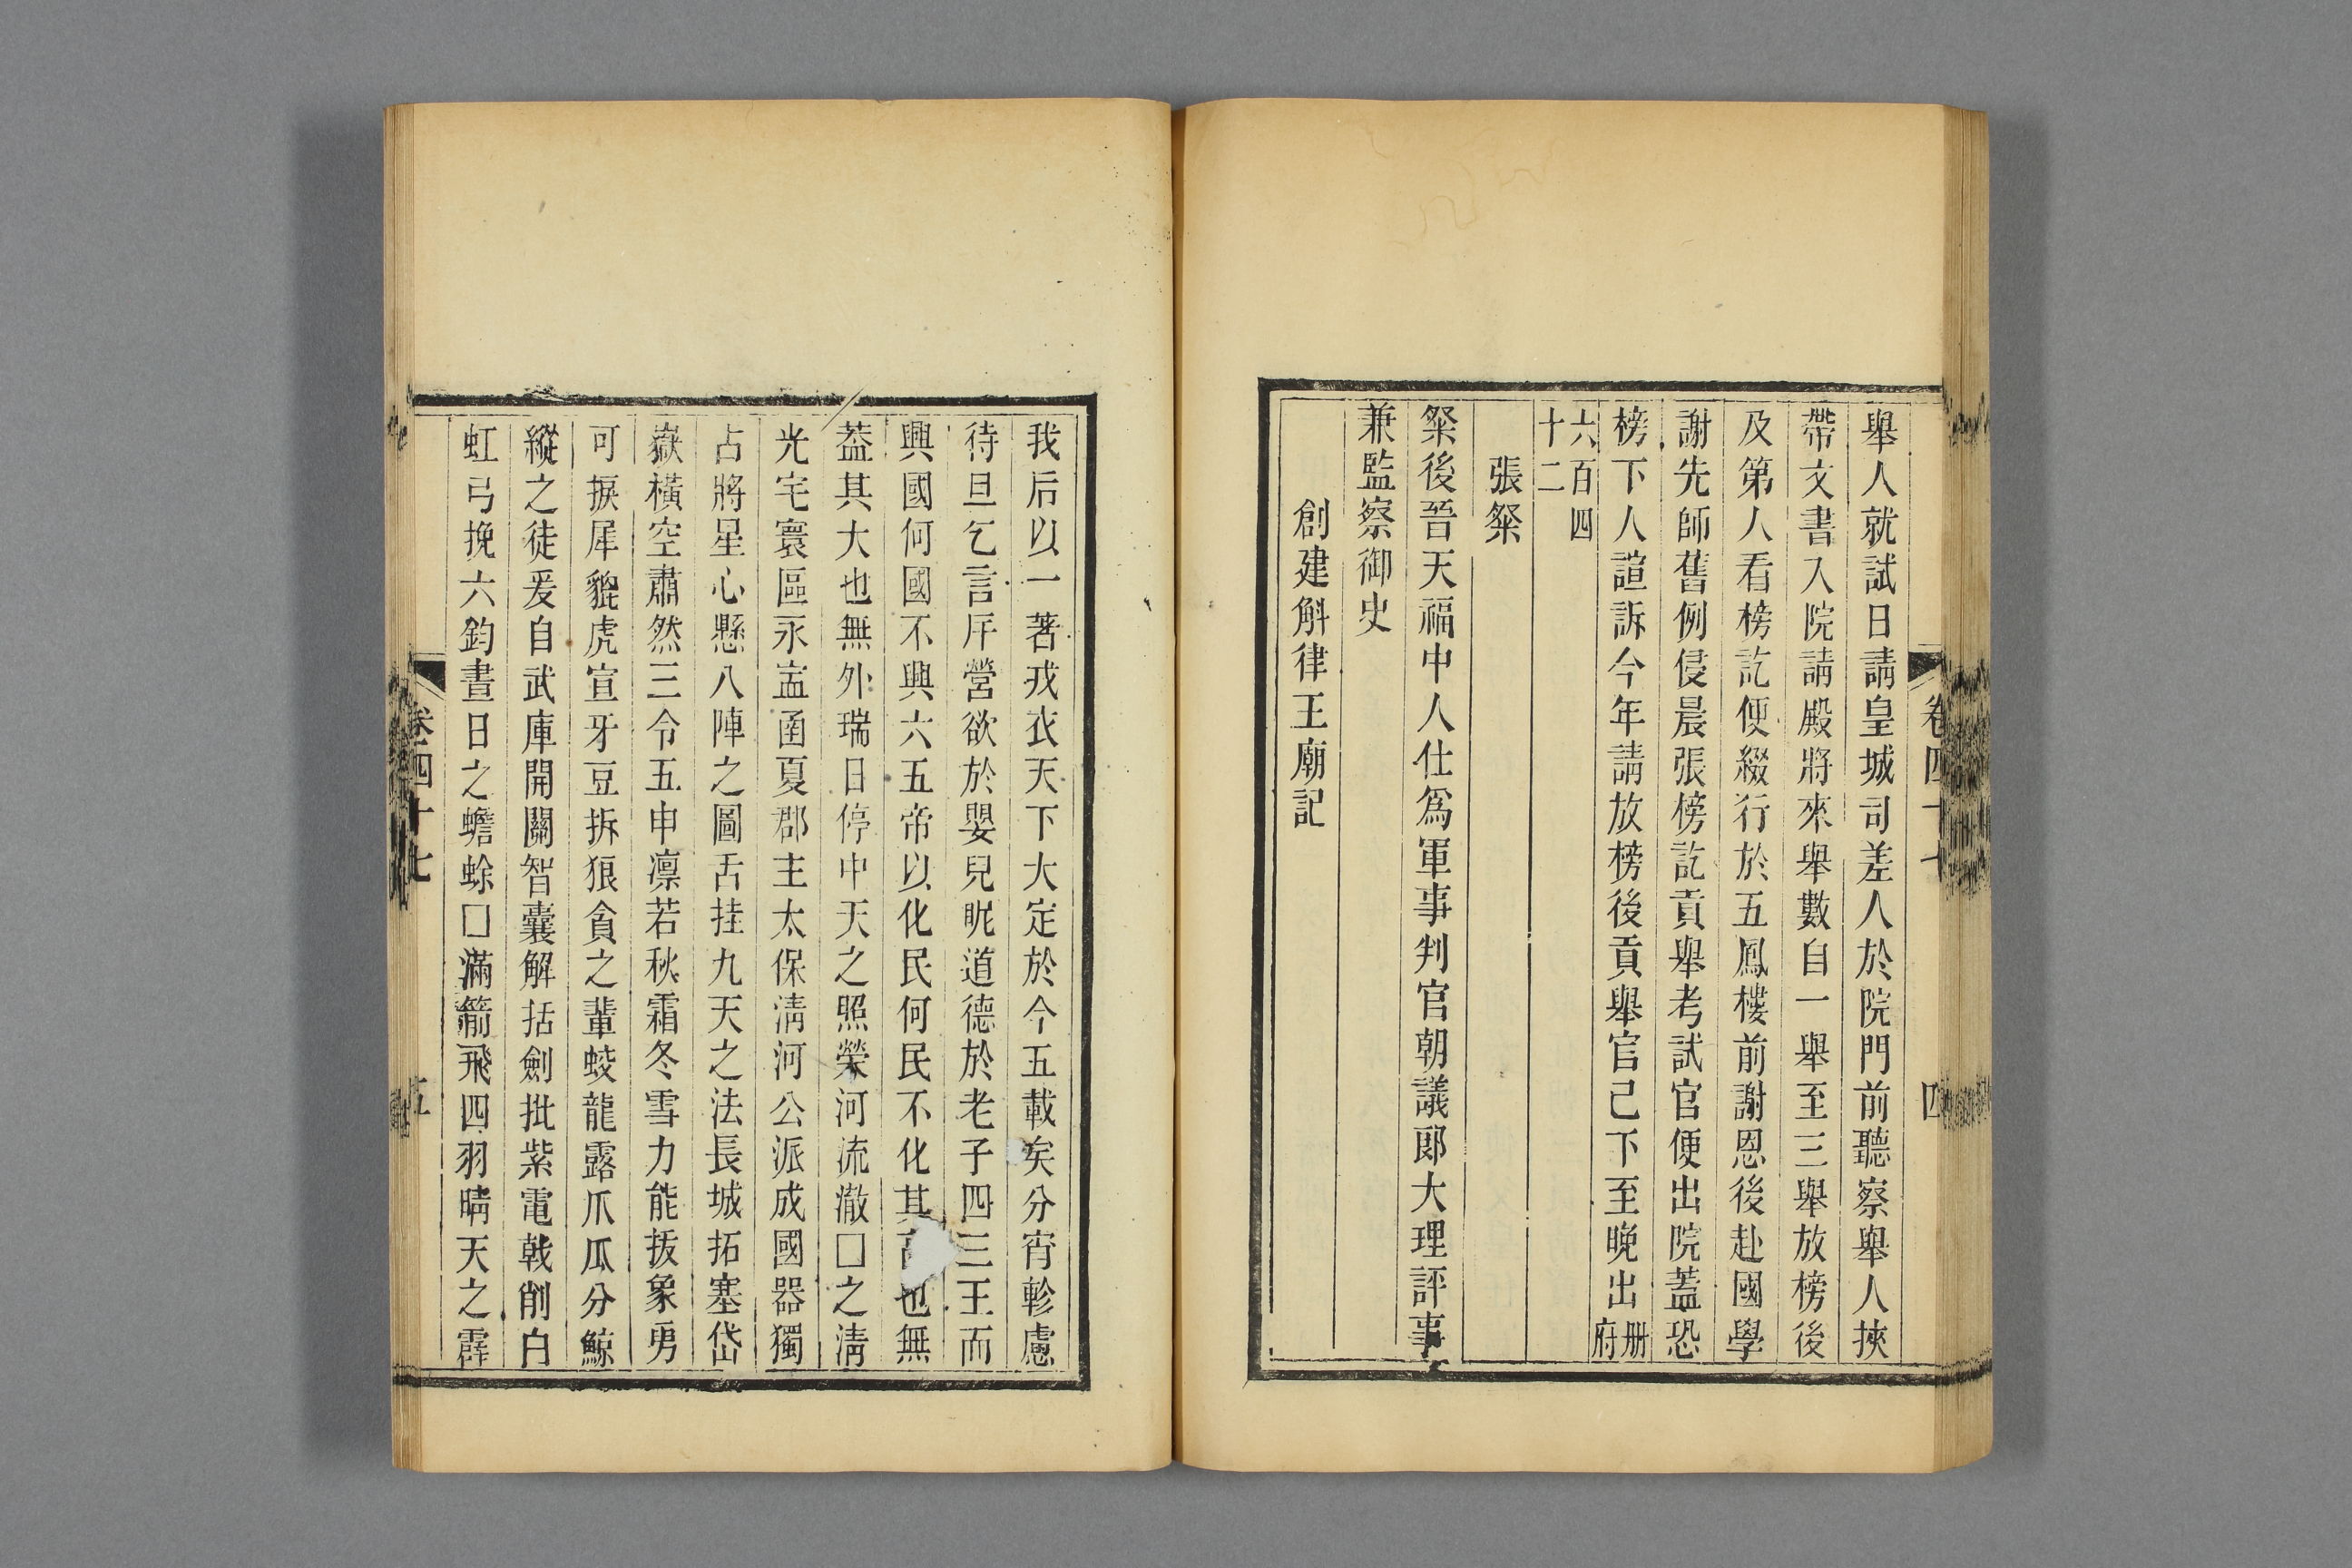 舉人就試日請皇城司差人於院門前聽察舉人挾
帶文書入院請殿將來舉數自一舉至三舉放榜後
及第人看榜訖便綴行於五鳳樓前謝恩後赴國學
謝先師舊例侵晨張榜訖貢舉考試官便出院蓋恐
榜下人諠訴今年請放榜後貢舉官己下至晚出册府
六百四十二
張粲
粲後晉天福中人仕爲軍事判官朝議郎大理評事
兼監察御史
創建斛律王廟記
卷四十七
四
我后以一著戎衣天下大定於今五載矣分宵軫慮
待旦乞言厈營欲於嬰兒眤道德於老子四三王而
興國何國不興六五帝以化民何民不化其高也無
蓋其大也無外瑞日停中天之照榮河流澈□之淸
光宅寰區永寍函夏郡主太保淸河公派成國器獨
占將星心懸八陣之圖舌挂九天之法長城拓塞岱
嶽橫空肅然三令五申凛若秋霜冬雪力能拔象勇
可捩犀貔虎宣牙豆拆狼貪之輩蛟龍露爪瓜分鯨
縱之徒爰自武庫開關智囊解括劍批紫電戟削白
虹弓挽六鈞晝日之蟾蜍□滿箭飛四羽晴天之霹
卷四十七
五